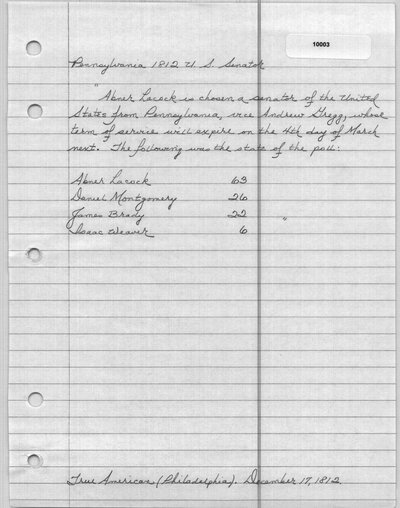 10003
Pennsylvania 1812 U. S. Senator
"Abner Lacock is chosen a senator of the United
States from Pennsylvania, vice Andrew Gregg, whose
term of service will expire on the 4th day of March
next. The following was the state of the poll:
Abner Lacock 63
Daniel Montgomery 26
James Brady 22 "
Isaac Weaver 6
True American (Philadelphia). December 17, 1812.